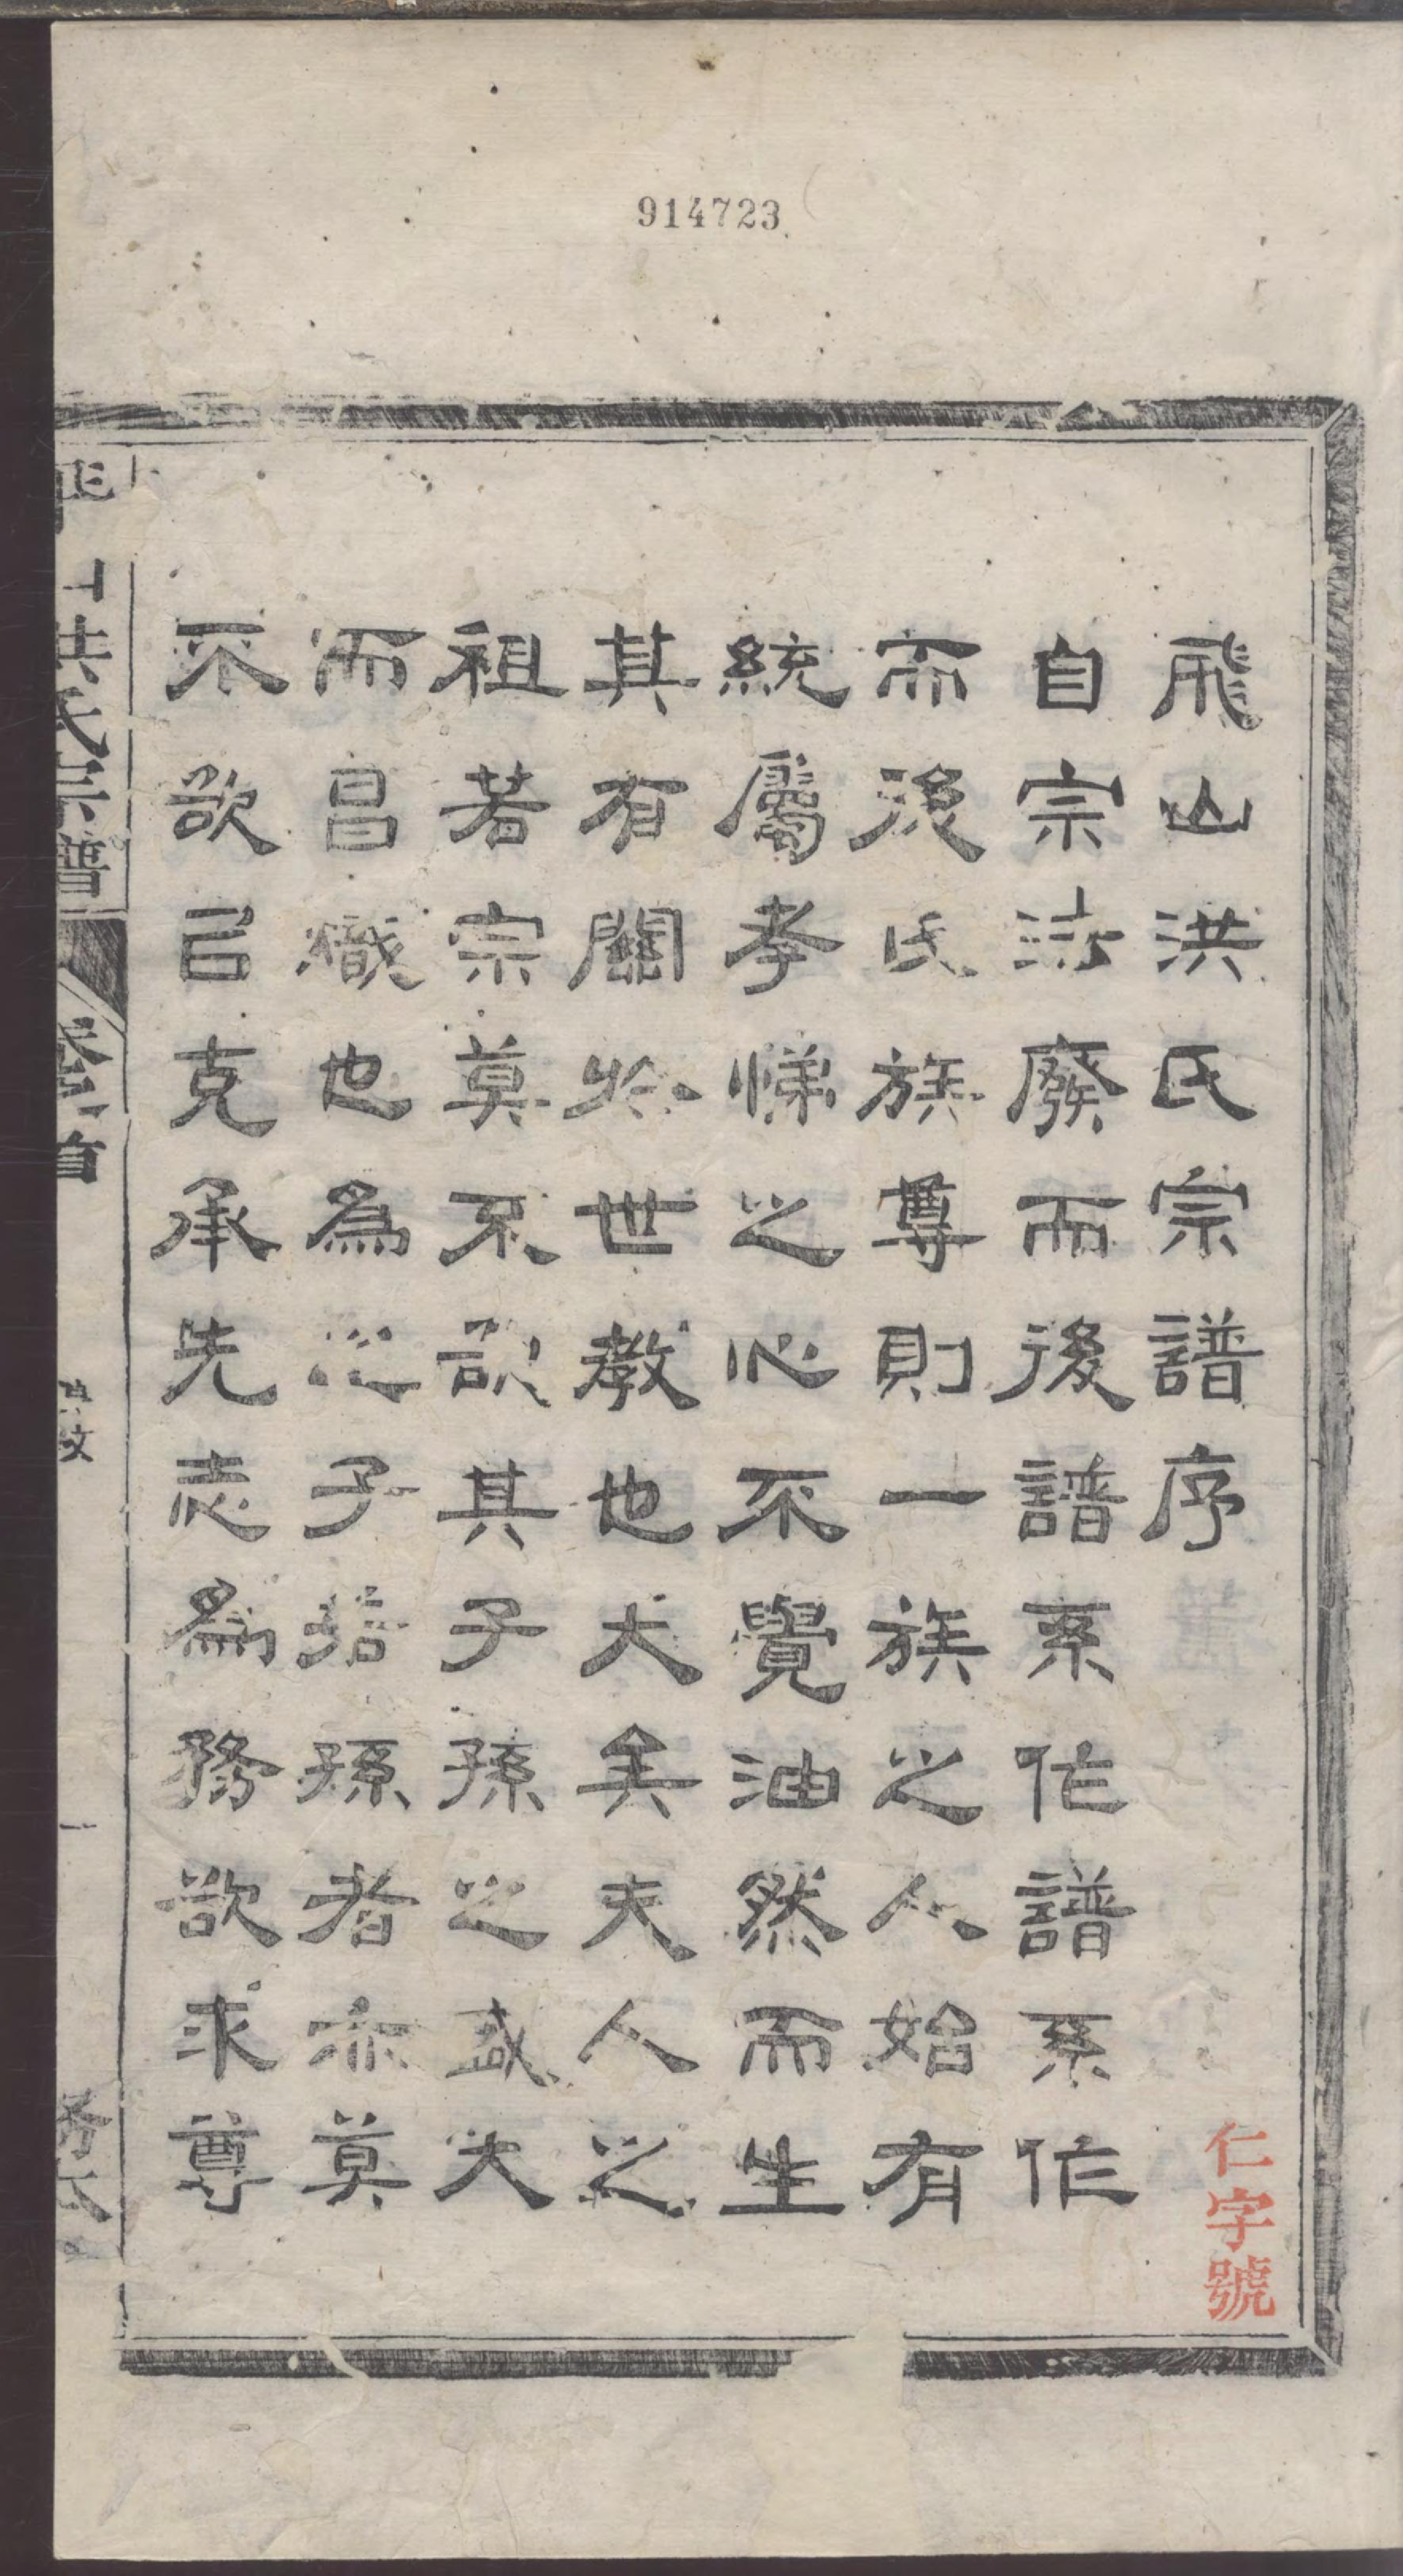 914723
飛山洪氏宗譜序
仁字號
自宗法廢而後譜系作譜系作
而後氏族尊則一族之人始有
統屬孝悌之心不覺油然而生
其有關於世教也大矣夫人之
祖若宗莫不欲其子孫之盛大
而昌熾也為之子若孫者亦莫
不欲以克承先志為務欲求尊
洪氏宗譜
卷首